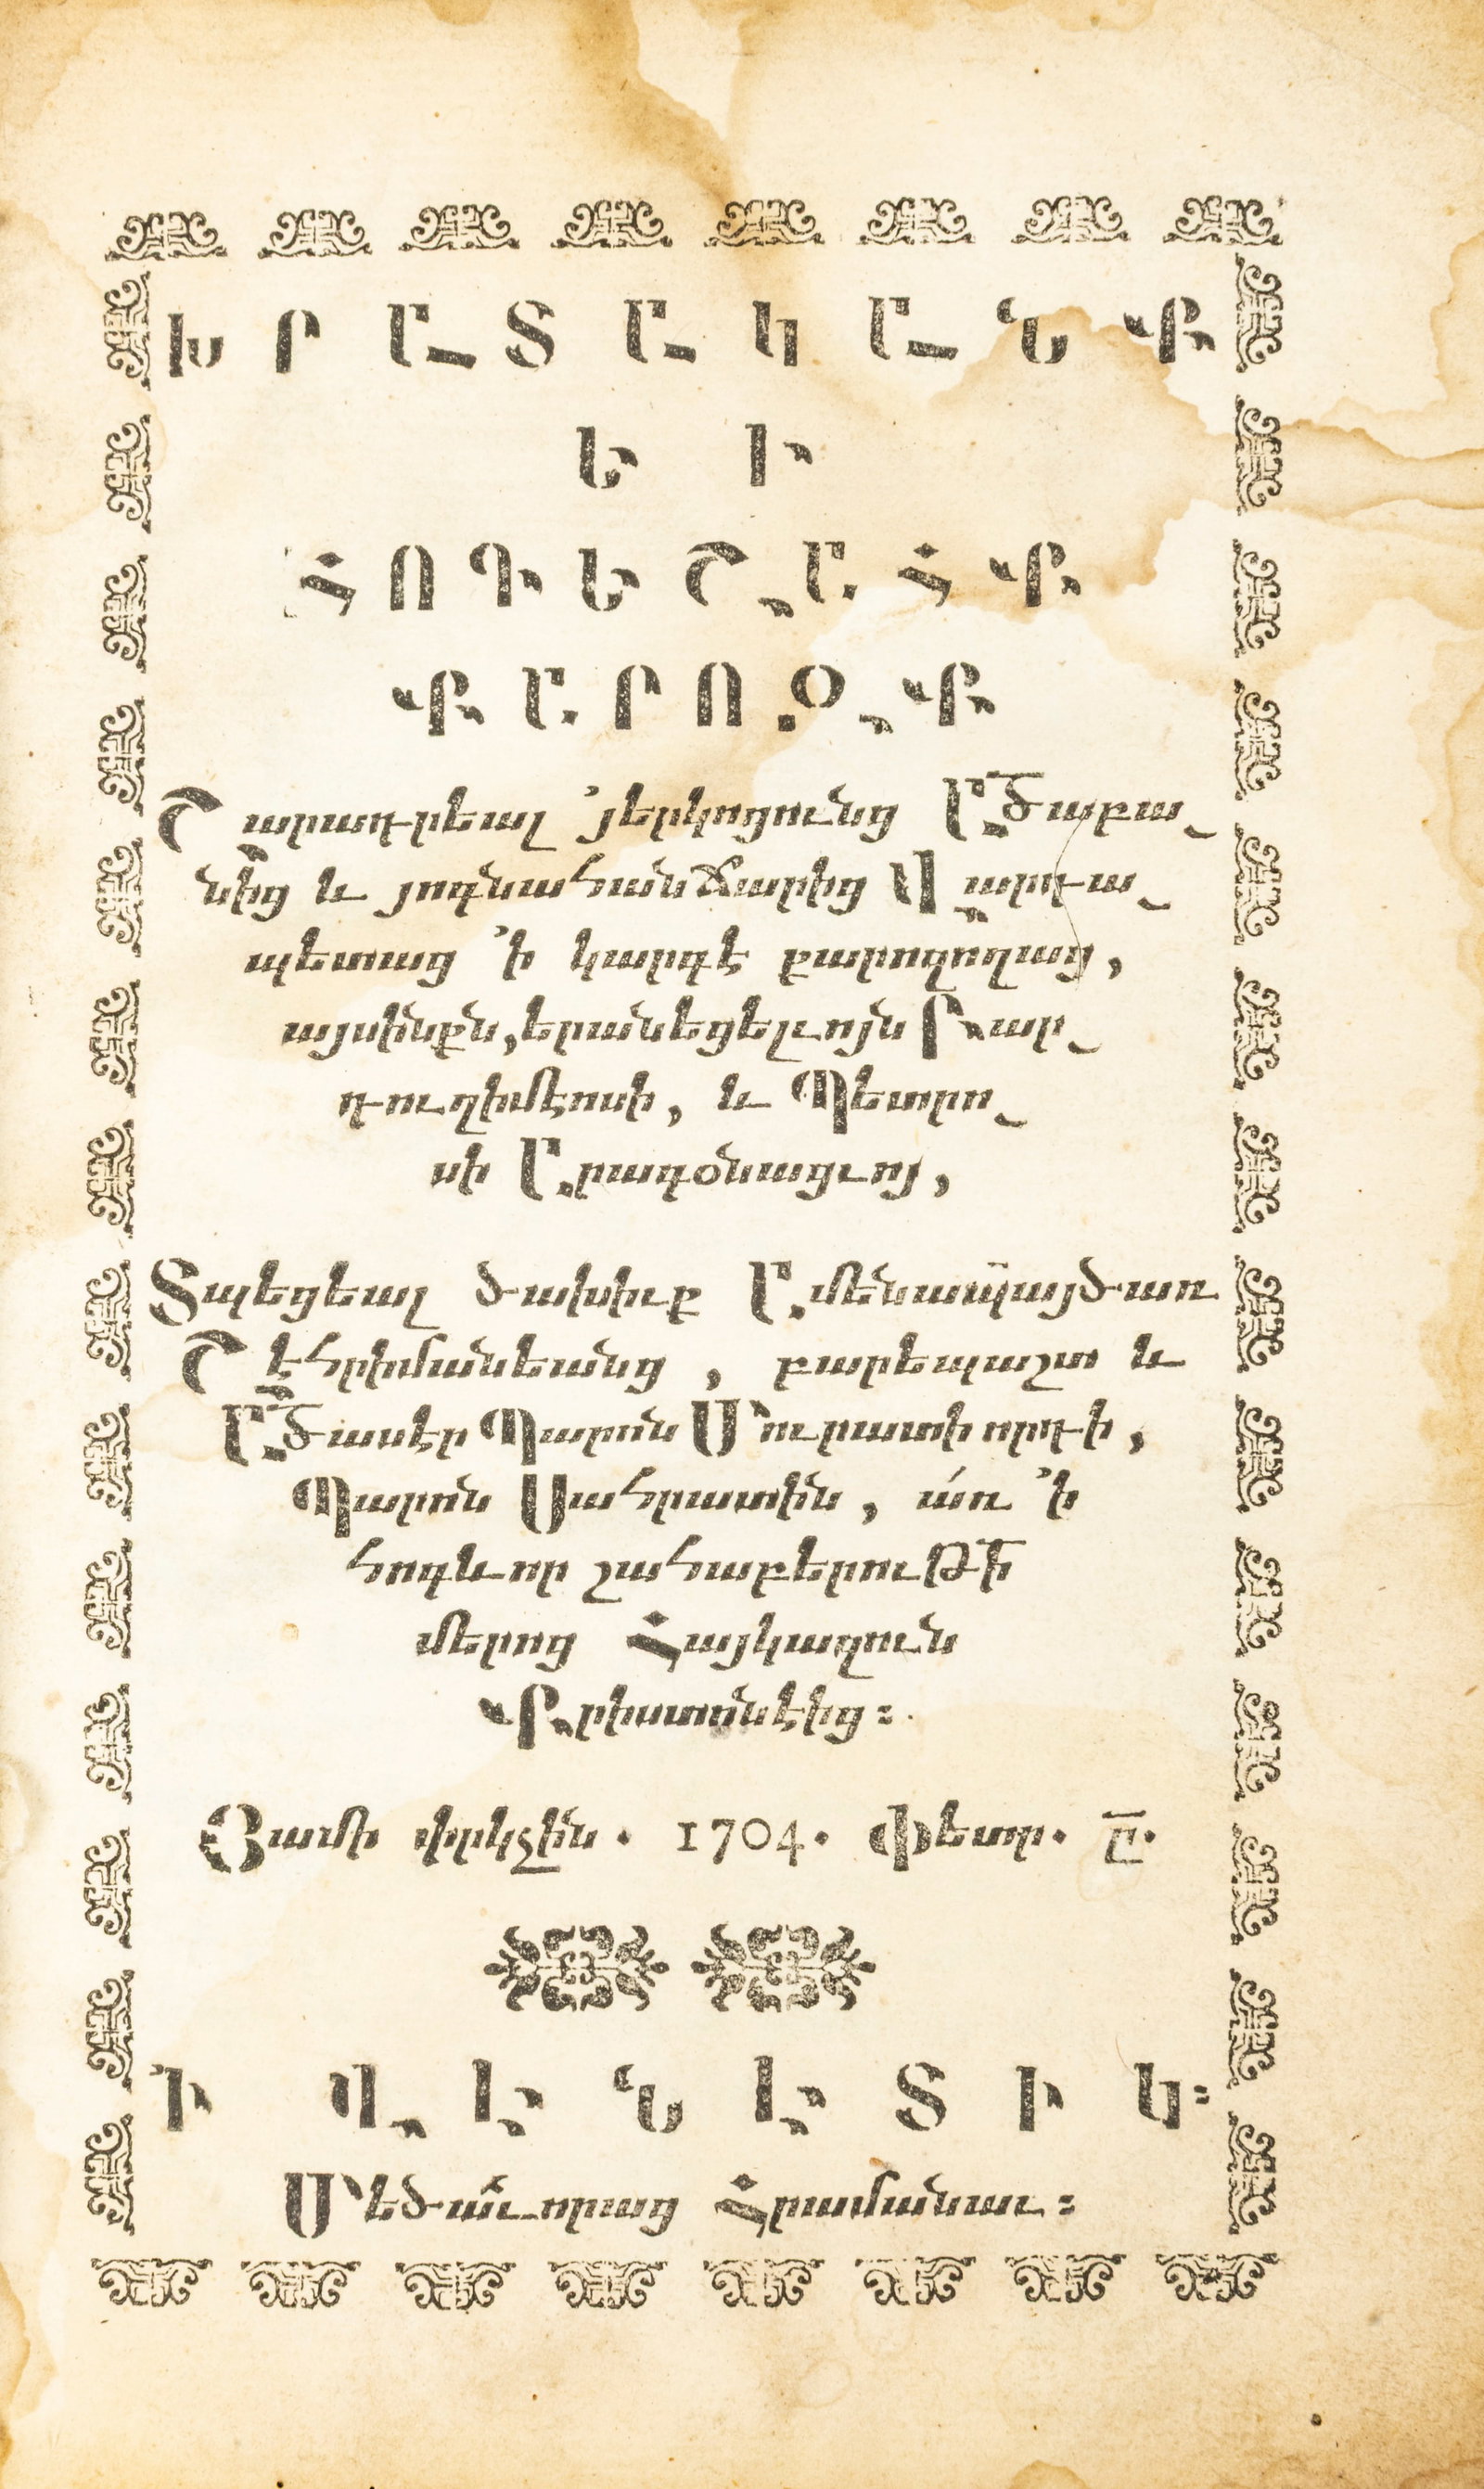 ԽՐԱՏԱԿԱՆՔ
ԵՒ
ՀՈԳԵՇԱՀՔ
ՔԱՐՈԶՔ
Շարադրեալ ՚յերկոցունց Ա՟Ծաբա֊
նից և յոգնահանճարից Վարդա֊
պետաց ՚ի կարգէ քարոզողաց,
այսինքն, երանեցելւոյն Բար֊
դուղիմէոսի, և Պետրո֊
սի Արագօնացւոյ,
Տպեցեալ ծախիւք Ամենապայծառ
Շէհրիմանեանց, բարեպաշտ և
Ա՟Ծասէր Պարոն Մուրատի որդի,
Պարոն Սահրատին, առ ՚ի
հոգևոր շահաբերութե՟
մերոց Հայկազուն
Քրիստոնէից։
Յամի փրկչին. 1704. Փետր. Ը.
Ի ՎԷՆԷՏԻԿ։
Մեծաւորաց Հրամանաւ։